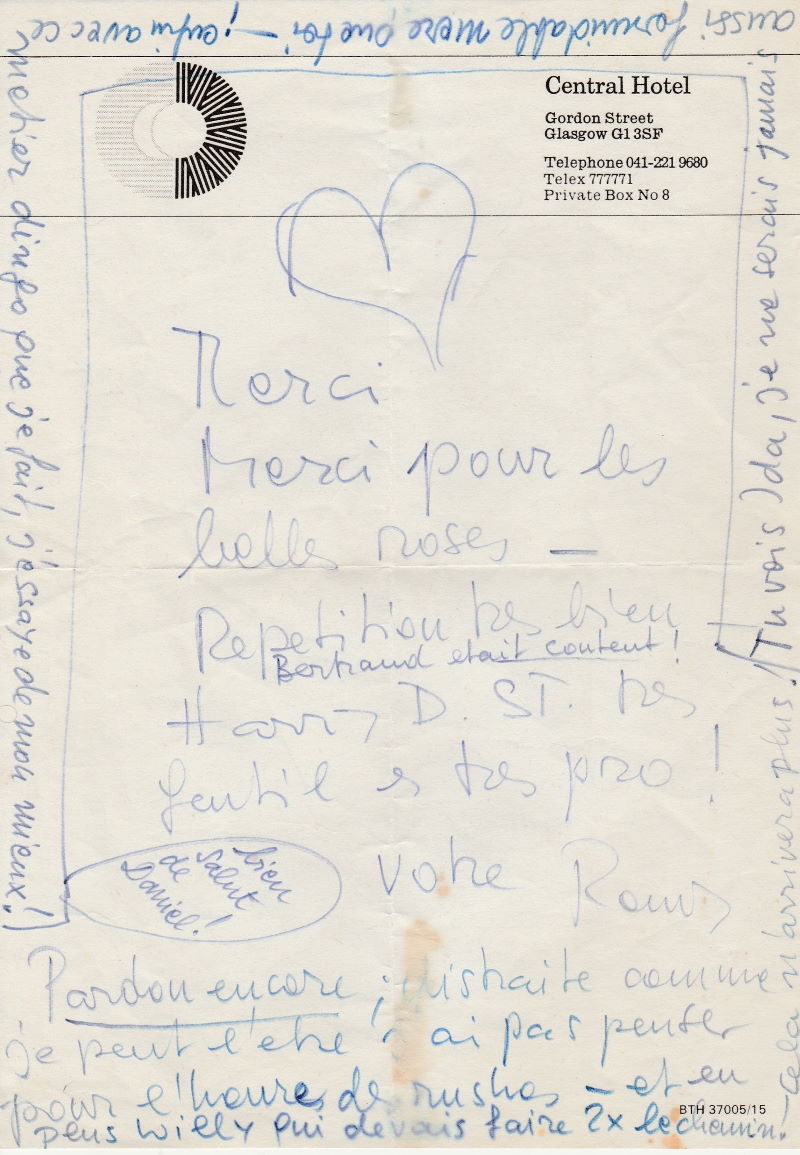 Central Hotel
Gordon Street
Glasgow G1 3SF
Telephone 041-221 9680
Telex 777771
Private Box No 8
Merci
Merci pour les
belles roses —
Repetition tres bien
Bertrand etait content !
Harry D. ST. tres
gentil es tres pro !
Votre Romy
bien
salut
de
Daniel !
Pardon encore ; distraite comme
je peut l'etre n'ai pas penser
pour l'heures de rushes – et en
peus Willy qui devais faire 2x le chemin. –
Cela n'arrivera plus !
(Tu vois Ida, je ne serais jamais
aussi formidable mere que toi – ; enfin avec ce
metier dingo que je fait, j'essaye de mon mieux !)
BTH 37005/15